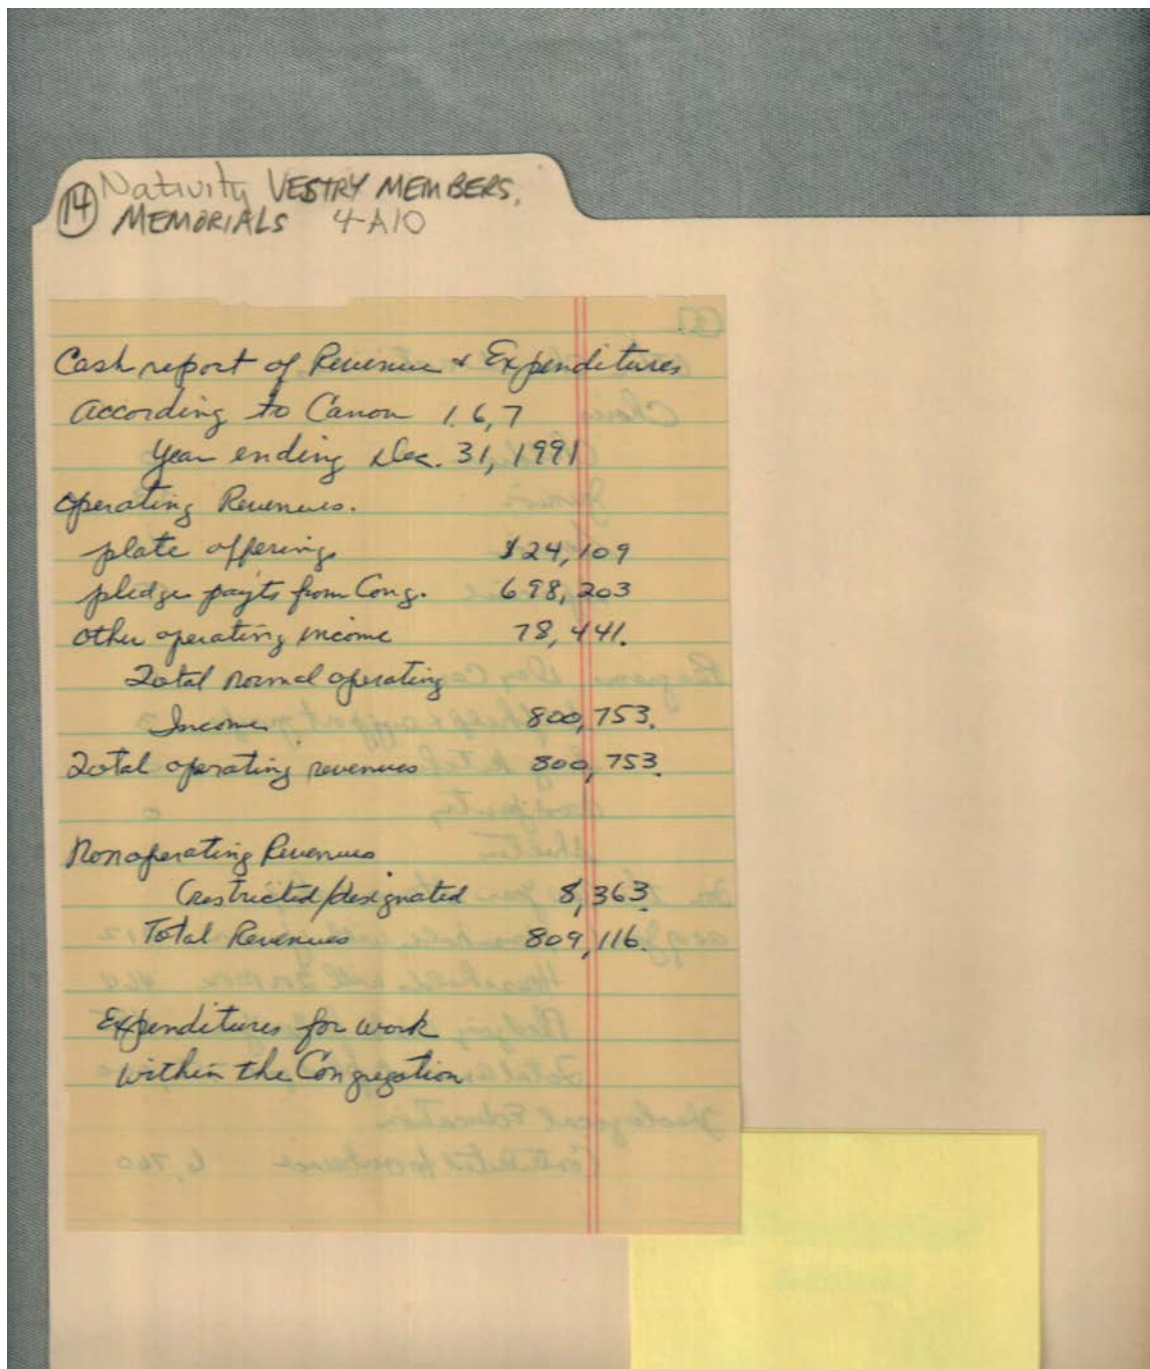 14 Nativity VESTRY MEMBERS,
MEMORIALS 4-A10
Cash report of Revenue & Expenditures
According to Canon 1.6,7
Year ending Dec. 31, 1991
Operating Revenues.
plate offerings $24,109
pledge payts from Cong. 698,203
other operating income 78,441.
Total normal operating
Income 800,753.
Total operating revenues 800,753.
Nonoperating Revenues
(restricted/designated 8,363.
Total Revenues 809,116.
Expenditures for work
within the Congregation